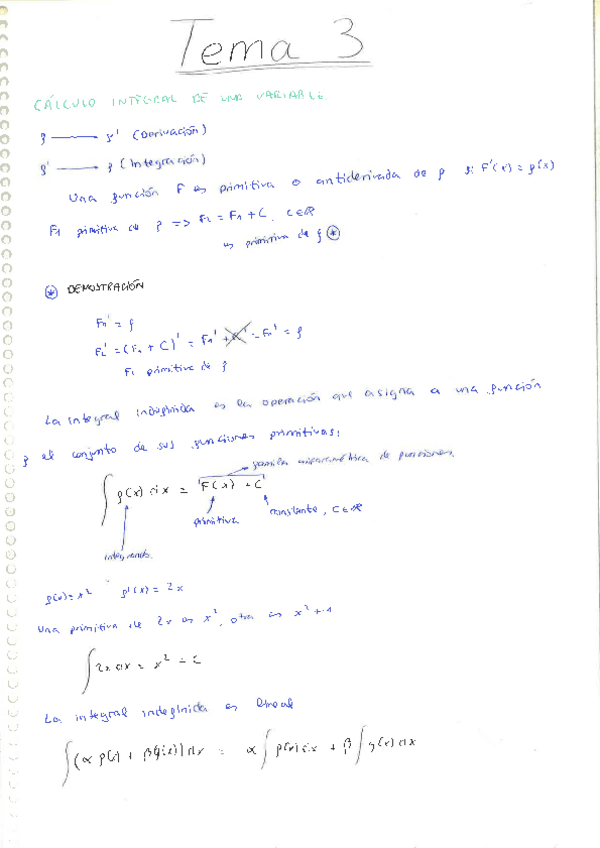 Tema 3
CÁLCULO INTEGRAL DE UNA VARIABLE.
f ⟶ f' (Derivación)
f' ⟶ f (Integración)
Una función F es primitiva o antiderivada de f si F'(x) = f(x)
F₁ primitiva de f => F₂ = F₁ + C, C∈ℝ
es primitiva de f ⊛
⊛ DEMOSTRACIÓN
F₁' = f
F₂' = (F₁ + C)' = F₁' + C' = F₁' = f
F₁ primitiva de f
La integral indefinida es la operación que asigna a una función
f el conjunto de sus funciones primitivas:
familia uniparamétrica de funciones.
∫ f(x) dx = F(x) + C
primitiva
constante, C∈ℝ
integrando.
f(x) = x² f'(x) = 2x
Una primitiva de 2x es x², otra es x² + 1
∫ 2x dx = x² + C
La integral indefinida es lineal
∫ (α f(x) + β g(x)) dx = α ∫ f(x) dx + β ∫ g(x) dx